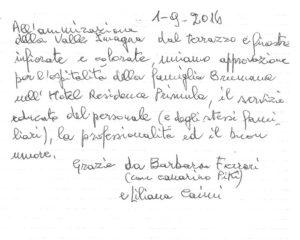 1-9-2016
All'ammirazione
della Valle Imagna dal terrazzo e finestre
infiorate e colorate, uniamo approvazione
per l'ospitalità della famiglia Brumana
nell' Hotel Residence Primula, il servizio
educato del personale (e degli stessi fami-
liari), la professionalità ed il buon
umore.
Grazie da Barbara Ferrari
(con canarino Pipi)
e Liliana